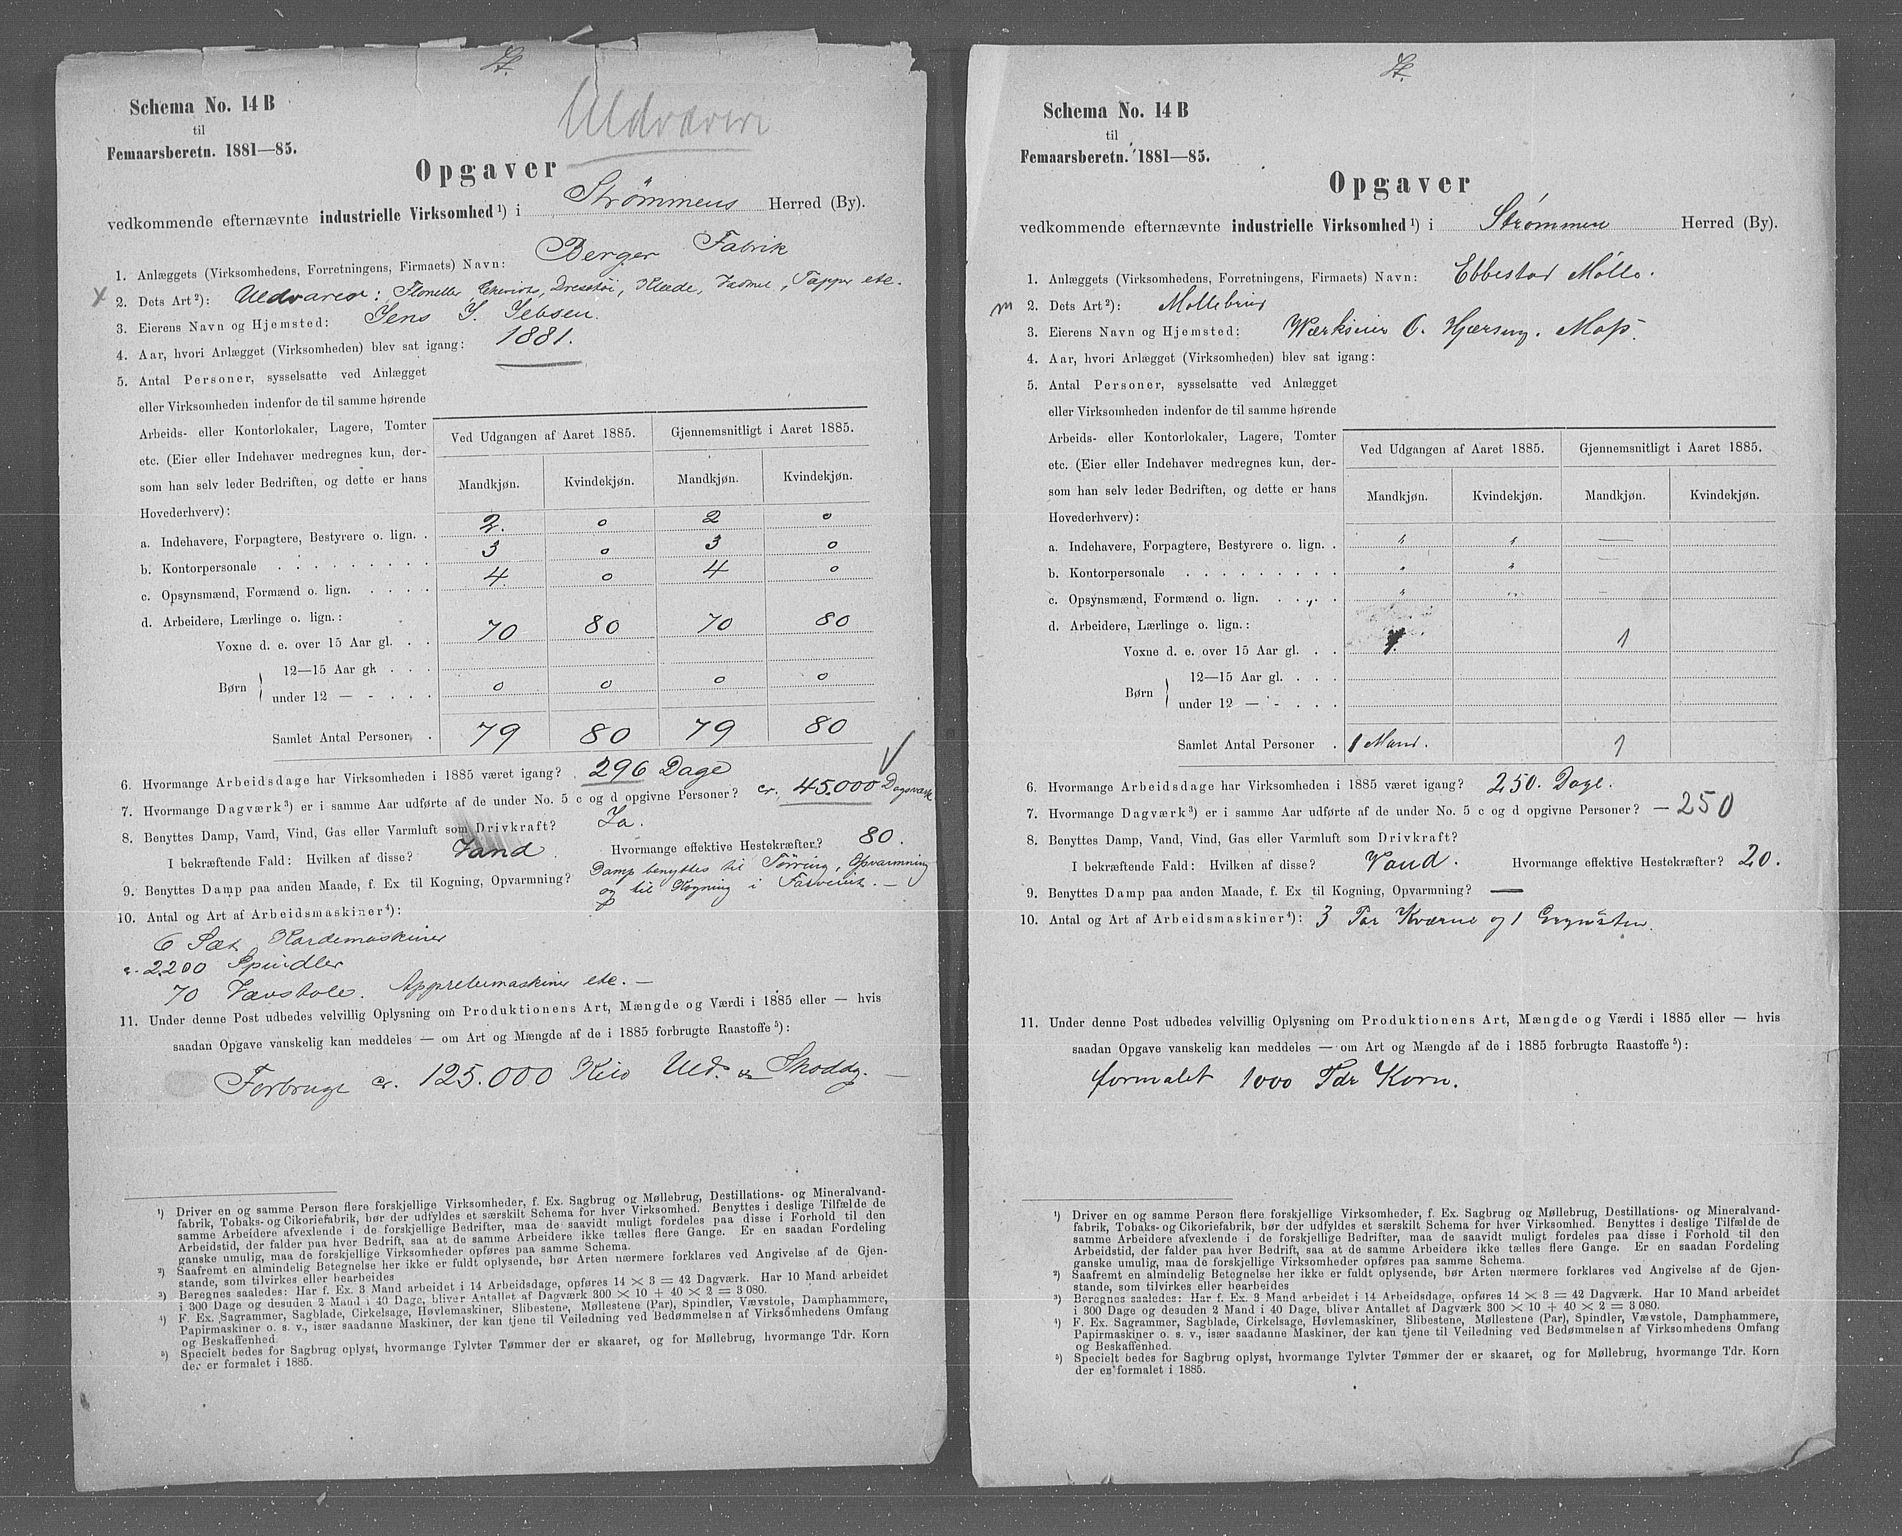 St.
Uldvæveri
Schema No. 14 B
til
Femaarsberetn. 1881—85.
Opgaver
vedkommende efternævnte industrielle Virksomhed ¹) i Strömmens Herred (By).
1. Anlæggets (Virksomhedens, Forretningens, Firmaets) Navn: Berger Fabrik
x 2. Dets Art ²): Uldvarer: Floneller, Dresstöi, Klæde, Vadmel, Tæpper etc.
3. Eierens Navn og Hjemsted: Jens J. Jebsen.
4. Aar, hvori Anlægget (Virksomheden) blev sat igang: 1881.
5. Antal Personer, sysselsatte ved Anlægget
eller Virksomheden indenfor de til samme hørende
Arbeids- eller Kontorlokaler, Lagere, Tomter
etc. (Eier eller Indehaver medregnes kun, der-
som han selv leder Bedriften, og dette er hans
Hovederhverv):
Ved Udgangen af Aaret 1885. Gjennemsnitligt i Aaret 1885.
Mandkjøn. Kvindekjøn. Mandkjøn. Kvindekjøn.
a. Indehavere, Forpagtere, Bestyrere o. lign. . 2. 0 2 0
b. Kontorpersonale . . . . . . . . . 3 0 3 0
c. Opsynsmænd, Formænd o. lign. . . . . 4 0 4 0
d. Arbeidere, Lærlinge o. lign.:
Voxne d. e. over 15 Aar gl. . . 70 80 70 80
Børn 12—15 Aar gl. . . .
under 12 — - . . . . 0 0 0 0
Samlet Antal Personer . 79 80 79 80
6. Hvormange Arbeidsdage har Virksomheden i 1885 været igang? 296 Dage
7. Hvormange Dagværk ³) er i samme Aar udførte af de under No. 5 c og d opgivne Personer? cr. 45.000 Dagsværk
8. Benyttes Damp, Vand, Vind, Gas eller Varmluft som Drivkraft? Ja.
I bekræftende Fald: Hvilken af disse? Vand. Hvormange effektive Hestekræfter? 80.
9. Benyttes Damp paa anden Maade, f. Ex til Kogning, Opvarmning? Damp benyttes til Törring, Opvarmning
og til Kogning i Farveriet. —
10. Antal og Art af Arbeidsmaskiner ⁴):
6 Sæt Kardemaskiner
c. 2200 Spindler
70 Vævstole. Appreturmaskiner etc. —
11. Under denne Post udbedes velvillig Oplysning om Produktionens Art, Mængde og Værdi i 1885 eller — hvis
saadan Opgave vanskelig kan meddeles — om Art og Mængde af de i 1885 forbrugte Raastoffe ⁵):
Forbruge cr. 125.000 Kilo Uld. & Shoddy. —
¹) Driver en og samme Person flere forskjellige Virksomheder, f. Ex. Sagbrug og Møllebrug, Destillations- og Mineralvand-
fabrik, Tobaks- og Cikoriefabrik, bør der udfyldes et særskilt Schema for hver Virksomhed. Benyttes i deslige Tilfælde de
samme Arbeidere afvexlende i de forskjellige Bedrifter, maa de saavidt muligt fordeles paa disse i Forhold til den
Arbeidstid, der falder paa hver Bedrift, saa at de samme Arbeidere ikke tælles flere Gange. Er en saadan Fordeling
ganske umulig, maa de forskjellige Virksomheder opføres paa samme Schema.
²) Saafremt en almindelig Betegnelse her ikke er fuldt oplysende, bør Arten nærmere forklares ved Angivelse af de Gjen-
stande, som tilvirkes eller bearbeides
³) Beregnes saaledes: Har f. Ex. 3 Mand arbeidet i 14 Arbeidsdage, opføres 14 × 3 = 42 Dagværk. Har 10 Mand arbeidet
i 300 Dage og desuden 2 Mand i 40 Dage, bliver Antallet af Dagværk 300 × 10 + 40 × 2 = 3 080.
⁴) F. Ex. Sagrammer, Sagblade, Cirkelsage, Høvlemaskiner, Slibestene, Møllestene (Par), Spindler, Vævstole, Damphammere,
Papirmaskiner o. s. v., især saadanne Maskiner, der kan tjene til Veiledning ved Bedømmelsen af Virksomhedens Omfang
og Beskaffenhed.
⁵) Specielt bedes for Sagbrug oplyst, hvormange Tylvter Tømmer der er skaaret, og for Møllebrug, hvormange Tdr. Korn
der er formalet i 1885.
St.
Schema No. 14 B
til
Femaarsberetn. 1881—85.
Opgaver
vedkommende efternævnte industrielle Virksomhed ¹) i Strömmen Herred (By).
1. Anlæggets (Virksomhedens, Forretningens, Firmaets) Navn: Ebbestad Mölle.
m 2. Dets Art ²): Möllebrug
3. Eierens Navn og Hjemsted: Værkseier O. Moss.
4. Aar, hvori Anlægget (Virksomheden) blev sat igang:
5. Antal Personer, sysselsatte ved Anlægget
eller Virksomheden indenfor de til samme hørende
Arbeids- eller Kontorlokaler, Lagere, Tomter
etc. (Eier eller Indehaver medregnes kun, der-
som han selv leder Bedriften, og dette er hans
Hovederhverv):
Ved Udgangen af Aaret 1885. Gjennemsnitligt i Aaret 1885.
Mandkjøn. Kvindekjøn. Mandkjøn. Kvindekjøn.
a. Indehavere, Forpagtere, Bestyrere o. lign. . " " —
b. Kontorpersonale . . . . . . . . . " "
c. Opsynsmænd, Formænd o. lign. . . . . " " —
d. Arbeidere, Lærlinge o. lign.:
Voxne d. e. over 15 Aar gl. . . 1
Børn 12—15 Aar gl. . . .
under 12 — - . . .
Samlet Antal Personer . 1 Mand. 1
6. Hvormange Arbeidsdage har Virksomheden i 1885 været igang? 250. Dage.
7. Hvormange Dagværk ³) er i samme Aar udførte af de under No. 5 c og d opgivne Personer? — 250
8. Benyttes Damp, Vand, Vind, Gas eller Varmluft som Drivkraft?
I bekræftende Fald: Hvilken af disse? Vand. Hvormange effektive Hestekræfter? 20.
9. Benyttes Damp paa anden Maade, f. Ex til Kogning, Opvarmning? —
10. Antal og Art af Arbeidsmaskiner ⁴): 3 Par Kværne og 1 Grynsten.
11. Under denne Post udbedes velvillig Oplysning om Produktionens Art, Mængde og Værdi i 1885 eller — hvis
saadan Opgave vanskelig kan meddeles — om Art og Mængde af de i 1885 forbrugte Raastoffe ⁵):
formalet 1000 Tdr Korn.
¹) Driver en og samme Person flere forskjellige Virksomheder, f. Ex. Sagbrug og Møllebrug, Destillations- og Mineralvand-
fabrik, Tobaks- og Cikoriefabrik, bør der udfyldes et særskilt Schema for hver Virksomhed. Benyttes i deslige Tilfælde de
samme Arbeidere afvexlende i de forskjellige Bedrifter, maa de saavidt muligt fordeles paa disse i Forhold til den
Arbeidstid, der falder paa hver Bedrift, saa at de samme Arbeidere ikke tælles flere Gange. Er en saadan Fordeling
ganske umulig, maa de forskjellige Virksomheder opføres paa samme Schema.
²) Saafremt en almindelig Betegnelse her ikke er fuldt oplysende, bør Arten nærmere forklares ved Angivelse af de Gjen-
stande, som tilvirkes eller bearbeides
³) Beregnes saaledes: Har f. Ex. 3 Mand arbeidet i 14 Arbeidsdage, opføres 14 × 3 = 42 Dagværk. Har 10 Mand arbeidet
i 300 Dage og desuden 2 Mand i 40 Dage, bliver Antallet af Dagværk 300 × 10 + 40 × 2 = 3 080.
⁴) F. Ex. Sagrammer, Sagblade, Cirkelsage, Høvlemaskiner, Slibestene, Møllestene (Par), Spindler, Vævstole, Damphammere,
Papirmaskiner o. s. v., især saadanne Maskiner, der kan tjene til Veiledning ved Bedømmelsen af Virksomhedens Omfang
og Beskaffenhed.
⁵) Specielt bedes for Sagbrug oplyst, hvormange Tylvter Tømmer der er skaaret, og for Møllebrug, hvormange Tdr. Korn
der er formalet i 1885.